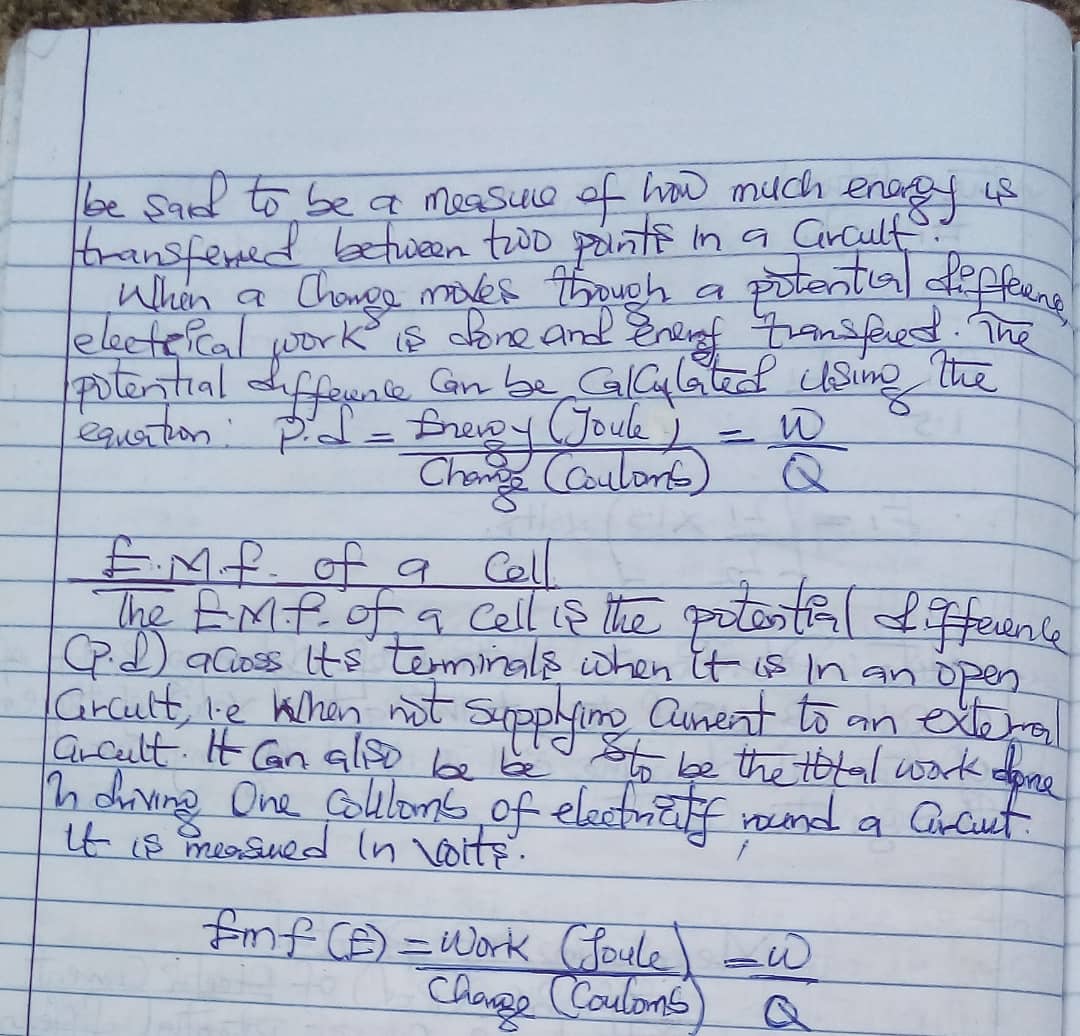 be said to be a measure of how much energy is
transferred between two points in a Circuit.
When a Charge moves through a potential difference,
electrical work is done and energy transfered. The
potential difference Can be Calculated Using the
equation: P.d = Energy (Joule) / Charge (Coulombs) = W / Q
E.M.f. of a Cell
The E.M.f. of a cell is the potential difference
(P.d) across Its terminals when it is In an open
Circuit, i.e When not supplying Current to an external
Circuit. It Can also be be to be the total work done
In driving One Coulombs of electricity round a Circuit.
It is measured In Volts.
Emf (E) = Work (Joule) / Charge (Coulombs) = W / Q